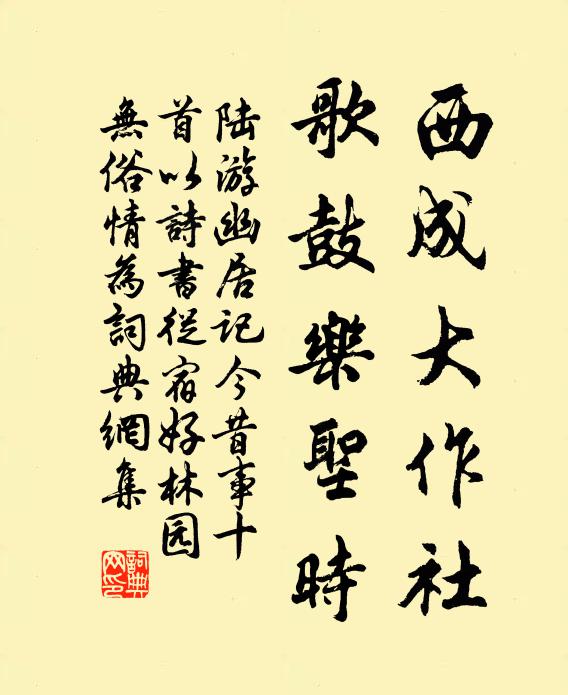 西成大作社
歌鼓樂聖時
陆游幽居记今昔事十
首以詩書從宿好林园
無俗情為詞典網集
詞典网印